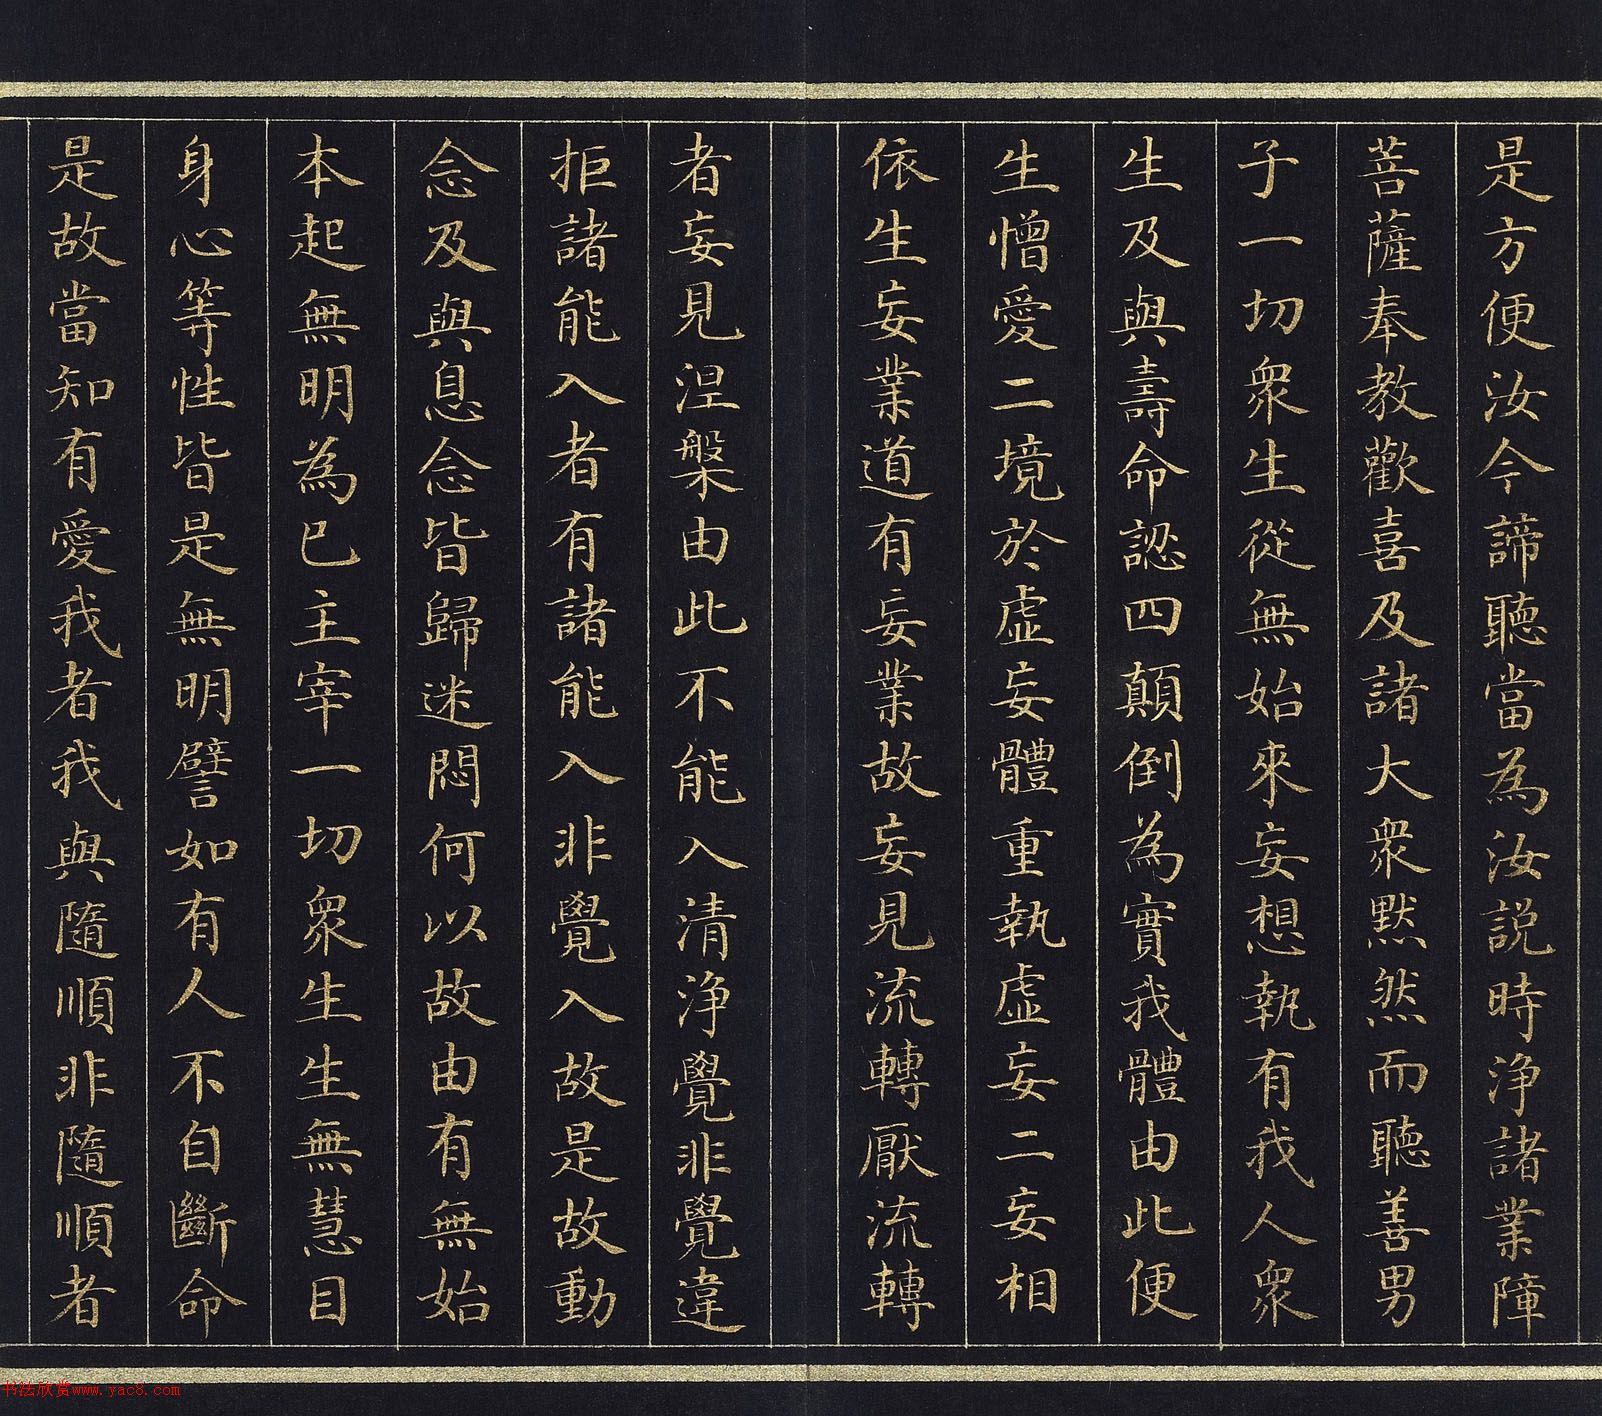 是方便汝今諦聽當為汝說時淨諸業障
菩薩奉教歡喜及諸大眾默然而聽善男
子一切眾生從無始來妄想執有我人眾
生及與壽命認四顛倒為實我體由此便
生憎愛二境於虛妄體重執虛妄二妄相
依生妄業道有妄業故妄見流轉厭流轉
者妄見涅槃由此不能入清淨覺非覺違
拒諸能入者有諸能入非覺入故是故動
念及與息念皆歸迷悶何以故由有無始
本起無明為已主宰一切眾生生無慧目
身心等性皆是無明譬如有人不自斷命
是故當知有愛我者我與隨順非隨順者
书法欣赏www.yac8.com